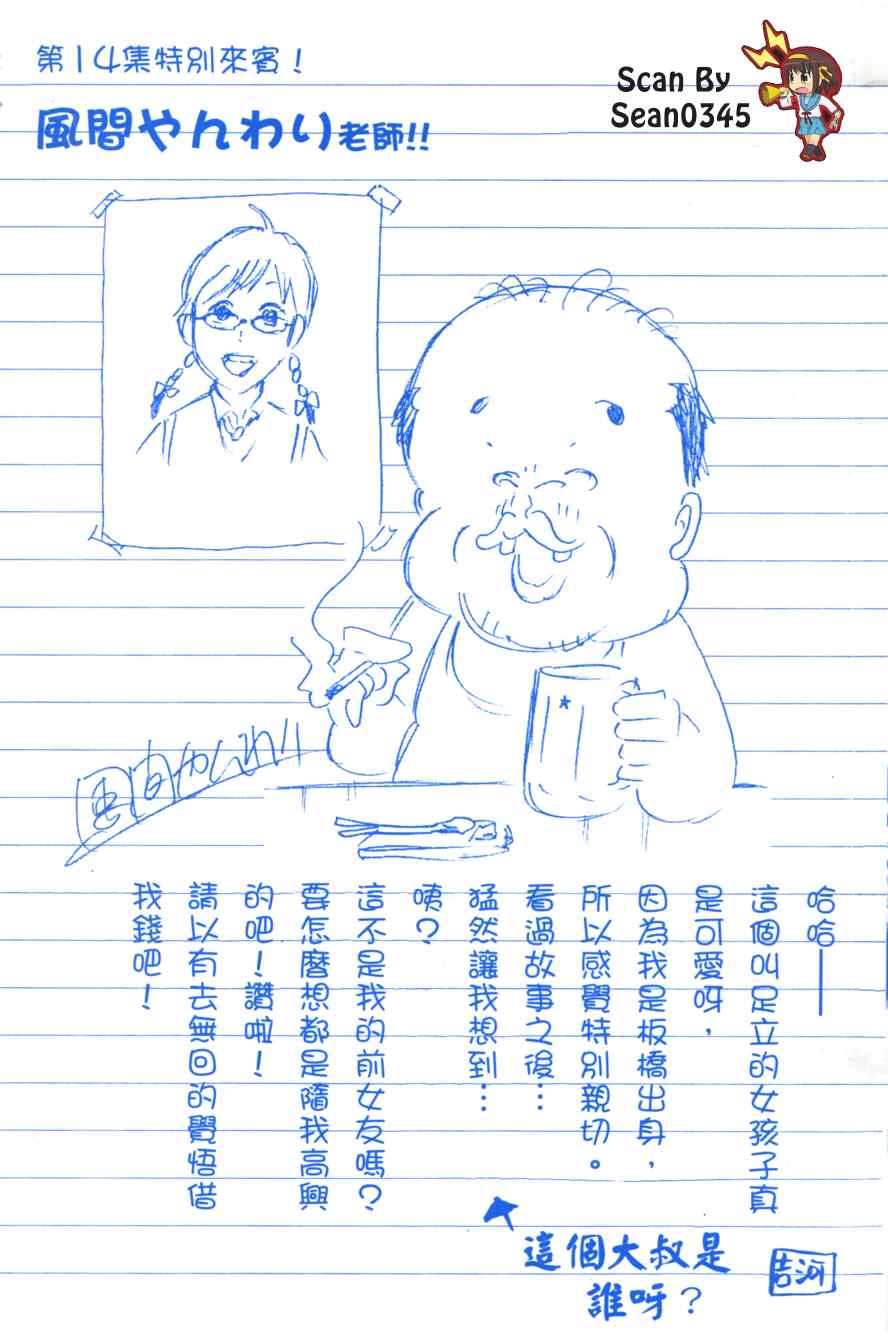 第14集特別來賓！
風間やんわり老師!!
Scan By
Sean0345
風間やんわり
哈哈——
這個叫足立的女孩子真
是可愛呀，
因為我是板橋出身，
所以感覺特別親切。
看過故事之後…
猛然讓我想到…
咦？
這不是我的前女友嗎？
要怎麼想都是隨我高興
的吧！讚啦！
請以有去無回的覺悟借
我錢吧！
這個大叔是
誰呀？
吉河